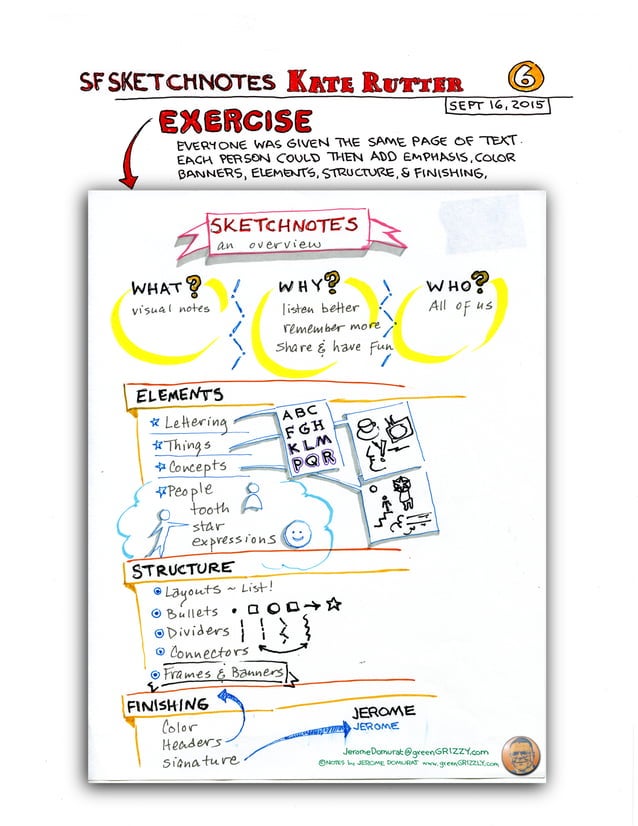 SF SKETCHNOTES KATE RUTTER 6
SEPT 16, 2015
EXERCISE
EVERYONE WAS GIVEN THE SAME PAGE OF TEXT.
EACH PERSON COULD THEN ADD EMPHASIS, COLOR
BANNERS, ELEMENTS, STRUCTURE, & FINISHING,
SKETCHNOTES
an overview
WHAT?
visual notes
WHY?
listen better
remember more
Share & have fun
WHO?
All of us
ELEMENTS
Lettering
Things
Concepts
People
tooth
star
expressions
ABC
FGH
KLM
PQR
STRUCTURE
Layouts ~ List!
Bullets
Dividers
Connectors
Frames & Banners
FINISHING
Color
Headers
signature
JEROME
JEROME
JeromeDomurat@greenGRIZZY.com
©NOTES by JEROME DOMURAT www.greenGRIZZLY.com